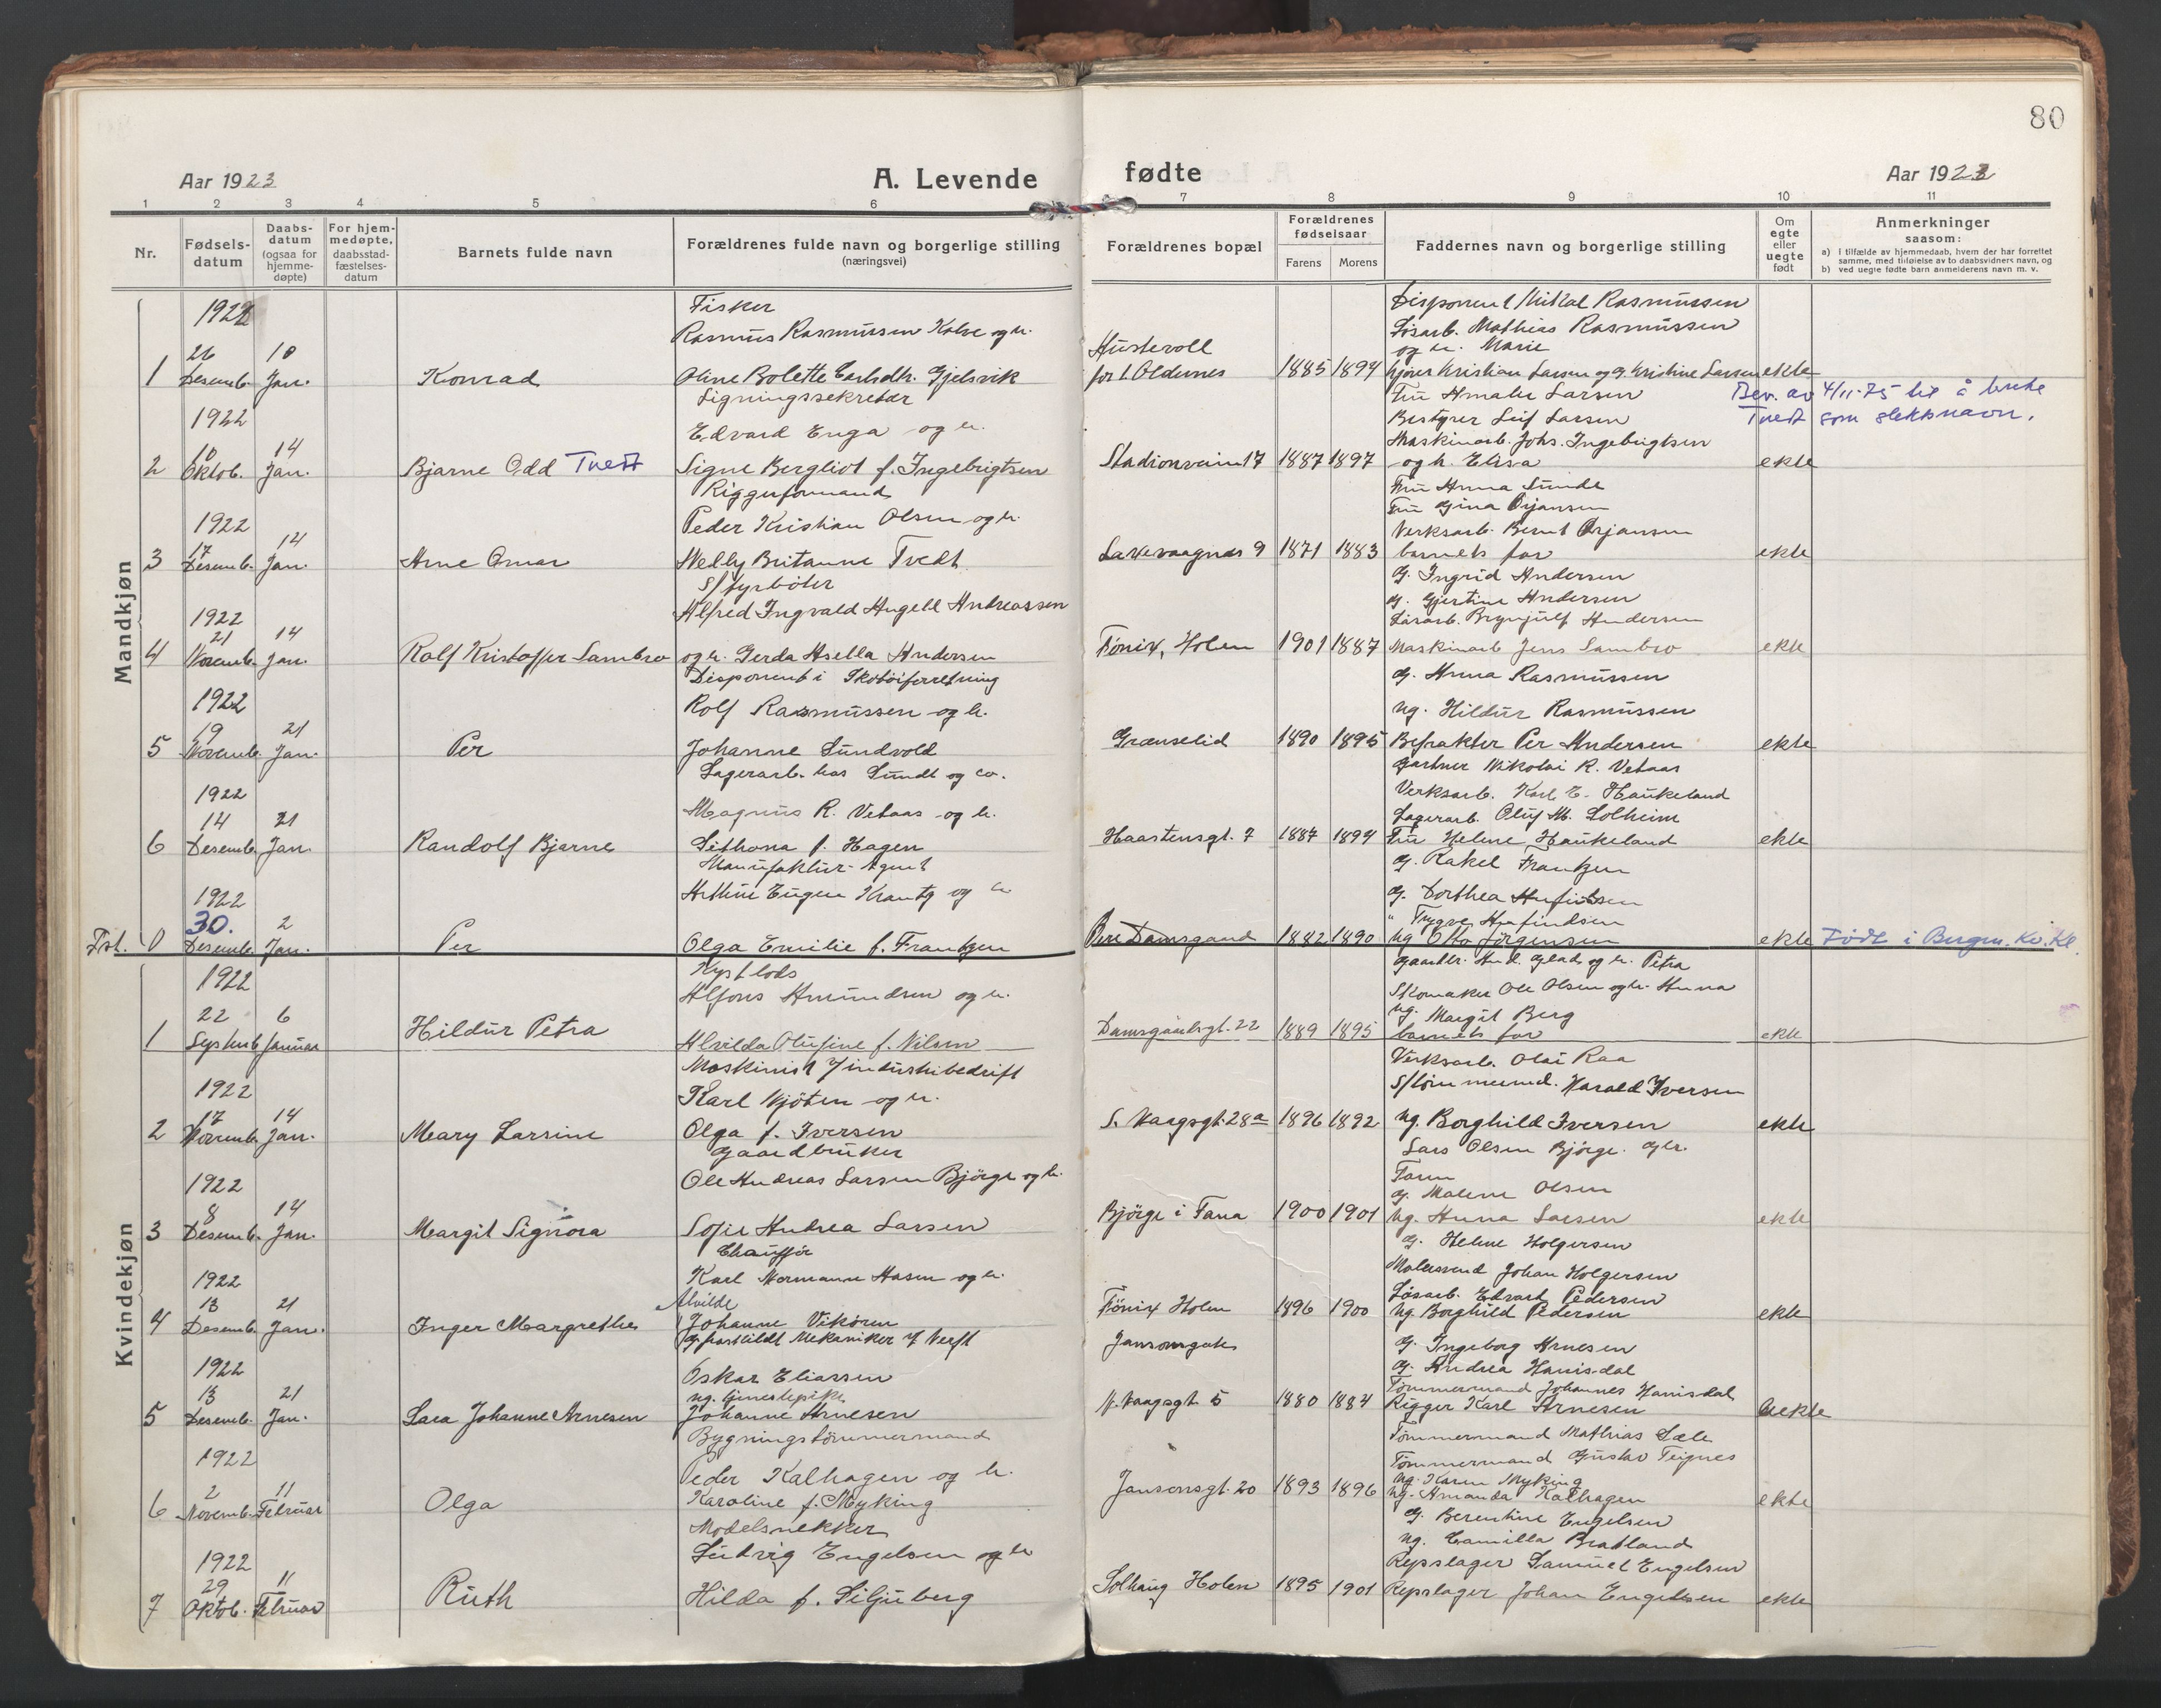 80
Aar 1923
A. Levende
fødte
Aar 1923
1 2 3 4 5 6 7 8 9 10 11
Nr.
Fødsels-
datum
Daabs-
datum
(ogsaa for
hjemme-
døpte)
For hjem-
medøpte,
daabsstad-
fæstelses-
datum
Barnets fulde navn
Forældrenes fulde navn og borgerlige stilling
(næringsvei)
Forældrenes bopæl
Forældrenes
fødselsaar
Farens Morens
Faddernes navn og borgerlige stilling
Om
egte
eller
uegte
født
Anmerkninger
saasom:
a) i tilfælde av hjemmedaab, hvem der har forrettet
samme, med tilføielse av to daabsvidners navn, og
b) ved uegte fødte barn anmelderens navn m. v.
Mandkjøn
1922
Fisker
Rasmus Rasmussen Kalve og h.
Disponent Mikal Rasmussen
Løsarb. Mathias Rasmussen
og h. Marie
Hustervoll
1 26 Desemb. 10 Jan. Konrad
Oline Bolette Gjelsvik
for t. Oldernes 1885 1894 Kristian Larsen og g. Kristine Larsen ekte
1922
Ligningssekretær
Edvard Enga og h.
Fru Amalie Larsen
Bestyrer Leif Larsen
Maskinarb. Johs. Ingebrigtsen
Bev. av 4/11-75 til å bruke
Tvedt som slektsnavn.
2 18 Oktob. 14 Jan. Bjarne Odd Tvedt
Signe Bergliot f. Ingebrigtsen
Stadionveien 17 1887 1897 og h. Elisa ekte
1922
Riggerformand
Peder Kristian Olsen og h.
Fru Anna Sunde
Fru Gina Ørjansen
Verksarb. Bernt Ørjansen
3 17 Desemb. 14 Jan. Arne Omar
Nelly Britanne Tvedt
Laxevaagnes 9 1871 1883 barnets far ekte
1922
S/fyrbøter
Alfred Ingvald Angell Andreassen
G. Ingrid Andersen
G. Gjertine Andersen
Løsarb. Brynjulf Andersen
4 21 Novemb. 14 Jan. Rolf Kristoffer Sambro
og h. Gerda Asella Andersen
Fönix, Holen 1901 1887 Maskinarb Jens Sambro ekte
1922
Disponent i Skotøiforretning
Rolf Rasmussen og h.
G. Anna Rasmussen
Ug. Hildur Rasmussen
5 19 Novemb. 21 Jan. Per
Johanne Sundvold
Grænselid 1890 1895 Befrakter Per Andersen ekte
1922
Lagerarb. hos Sundt og co.
Magnus R. Vetaas og h.
Gartner Nikolai R. Vetaas
Verksarb. Karl E. Haukeland
Lagerarb. Oluf M. Solheim
6 14 Desemb. 21 Jan. Randolf Bjarne
Lithona f. Hagen
Haastensgt. 7 1887 1894 Fru Helene Haukeland ekte
1922
Manufaktur-Agent
Arthur Eugen Krantz og h
G. Rakel Frantzen
G. Dorthea Arfindsen
" Trygve Arfindsen
Fst. 0 30. Desemb. 2 Jan. Per
Olga Emilie f. Frantzen
Øvre Damsgaard 1882 1890 Ug Otto Jörgensen ekte Født i Bergen. Kv. Kl.
Kvindekjøn
1922
Kystlods
Alfons Amundsen og h.
Gaardbr. And. Glad og h. Petra
Skomaker Ole Olsen og h. Anna
Ug. Margit Berg
1 22 Septemb 6 Januar Hildur Petra
Alvilda Olufine f. Nilsen
Damsgårdsgt. 22 1889 1895 barnets far ekte
1922
Maskinist i industribedrift
Karl Kjöten og h.
Verksarb. Olai Raa
S/tömmermd. Harald Iversen
2 17 Novemb. 14 Jan. Mary Larsine
Olga f. Iversen
S. Vaagsgt. 28a 1896 1892 Ug. Borghild Iversen ekte
1922
Gaardbruker
Ole Andreas Larsen Björge og h.
Lars Olsen Björge. Gbr.
Fana
G. Malene Olsen
3 8 Desemb. 14 Jan. Margit Signora
Sofie Andrea Larsen
Björge i Fana 1900 1901 Ug. Anna Larsen ekte
1922
Chauffør
Karl Normann Hasen og h.
G. Helene Holgersen
Malersvend Johan Holgersen
Løsarb. Edvart Pedersen
4 13 Desemb. 21 Jan. Inger Margrethe
Alvilde
Johanne Vikören
Fönix Holen 1896 1900 Ug. Borghild Pedersen ekte
1922
G. fraskildt Mekaniker v/ Verft
Oskar Eliassen
Jansonsgate
G. Ingeborg Arnesen
G. Andrea Hanisdal
Tömmermand Johannes Hanisdal
5 13 Desemb. 21 Jan. Lara Johanne Arnesen
ug. tjenestepike
Johanne Arnesen
N. Vaagsgt. 5 1880 1884 Rigger Karl Arnesen Uekte
1922
Bygningstömmermand
Peder Kalhagen og h.
Tömmermand Mathias Sæle
Tömmermand Gustav Teignes
Ug. Karen Myking
6 2 Novemb. 11 Februar Olga
Karoline f. Myking
Jansonsgt. 20 1893 1896 Ug. Amanda Kalhagen ekte
1922
Modelsnekker
Ludvig Engelsen og h
G. Berentine Engelsen
Ug. Camilla Bratland
Repslager Samuel Engelsen
7 29 Oktob. 11 Februar Ruth
Hilda f. Siljuberg
Solhaug Holen 1895 1901 Repslager Johan Engelsen ekte